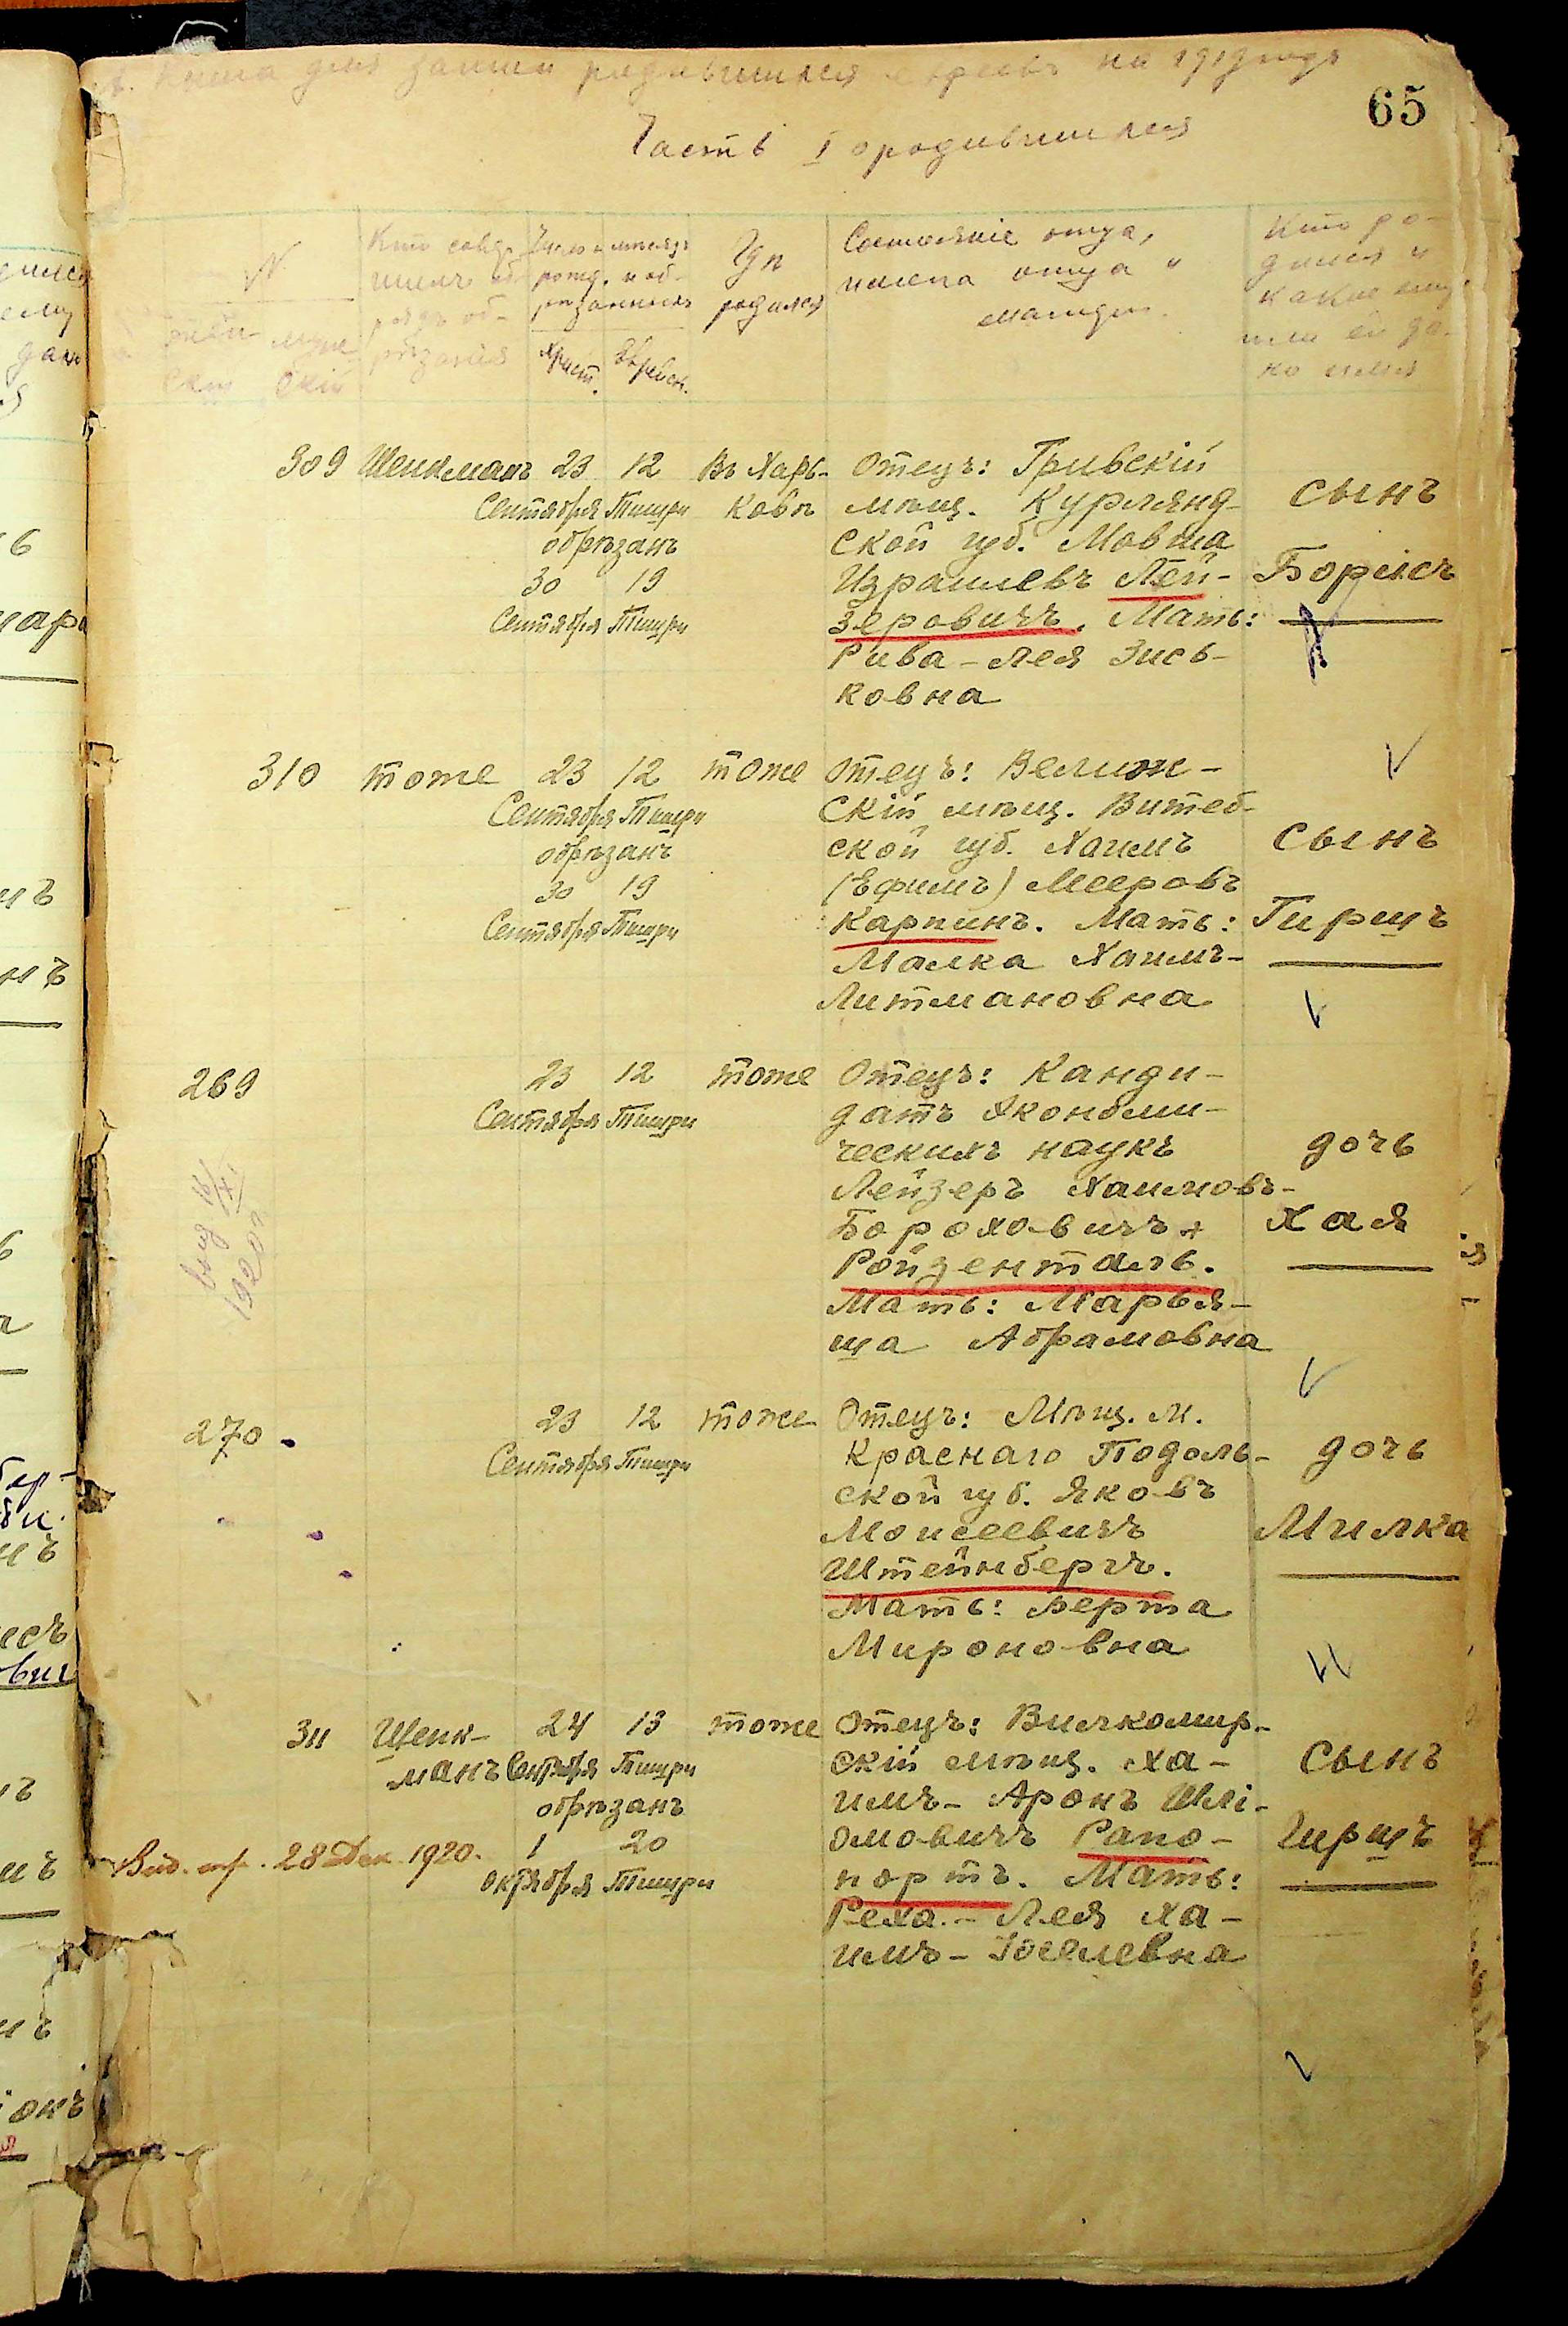 Книга для записи родившихся евреевъ на 1919 годъ
65
Часть I о родившихся
№
жен-
ский
муж
скій
Кто совер-
шилъ об-
рядъ об-
рѣзанія
Число и мѣсяцъ
рожд. и об-
рѣзанія
Христ.
Еврейск.
Гдѣ
родился
Состояніе отца,
имена отца и
матери.
Кто ро-
дился и
какое ему
или ей да-
но имя
309 Шенкманъ 23 12 Въ Харь-
ковѣ
Сентября Тишри
обрѣзанъ
30 19
Сентября Тишри
Отецъ: Гривскій
мѣщ. Курлянд-
ской губ. Мовша
Израилевъ Лей-
зеровичъ. Мать:
Рива-Лея Зись-
ковна
сынъ
Борисъ
310 тоже 23 12 тоже
Сентября Тишри
обрѣзанъ
30 19
Сентября Тишри
Отецъ: Велиж-
скій мѣщ. Витеб-
ской губ. Хаимъ
(Ефимъ) Мееровъ
Карпинъ. Мать:
Малка Хаимъ-
Литмановна
сынъ
Гиршъ
269 23 12 тоже
Сентября Тишри
Отецъ: Канди-
датъ Экономи-
ческихъ наукъ
Лейзеръ Хаимовъ-
Бороховичъ
Ройзенталь.
Мать: Марья-
ша Абрамовна
дочь
Хая
1920
270 23 12 тоже
Сентября Тишри
Отецъ: Мѣщ. м.
Краснаго Подоль-
ской губ. Яковъ
Моисеевичъ
Штейнбергъ.
Мать: Берта
Мироновна
дочь
Милка
311 Шенк-
манъ
24 13 тоже
Сентября Тишри
обрѣзанъ
1 20
октября Тишри
Отецъ: Вилкомир-
скій мѣщ. Ха-
имъ-Аронъ Шлі-
омовичъ Рапо-
портъ. Мать:
Реха-Лея Ха-
имъ-Іоселевна
сынъ
Гиршъ
Выд. 28 Дек. 1920.